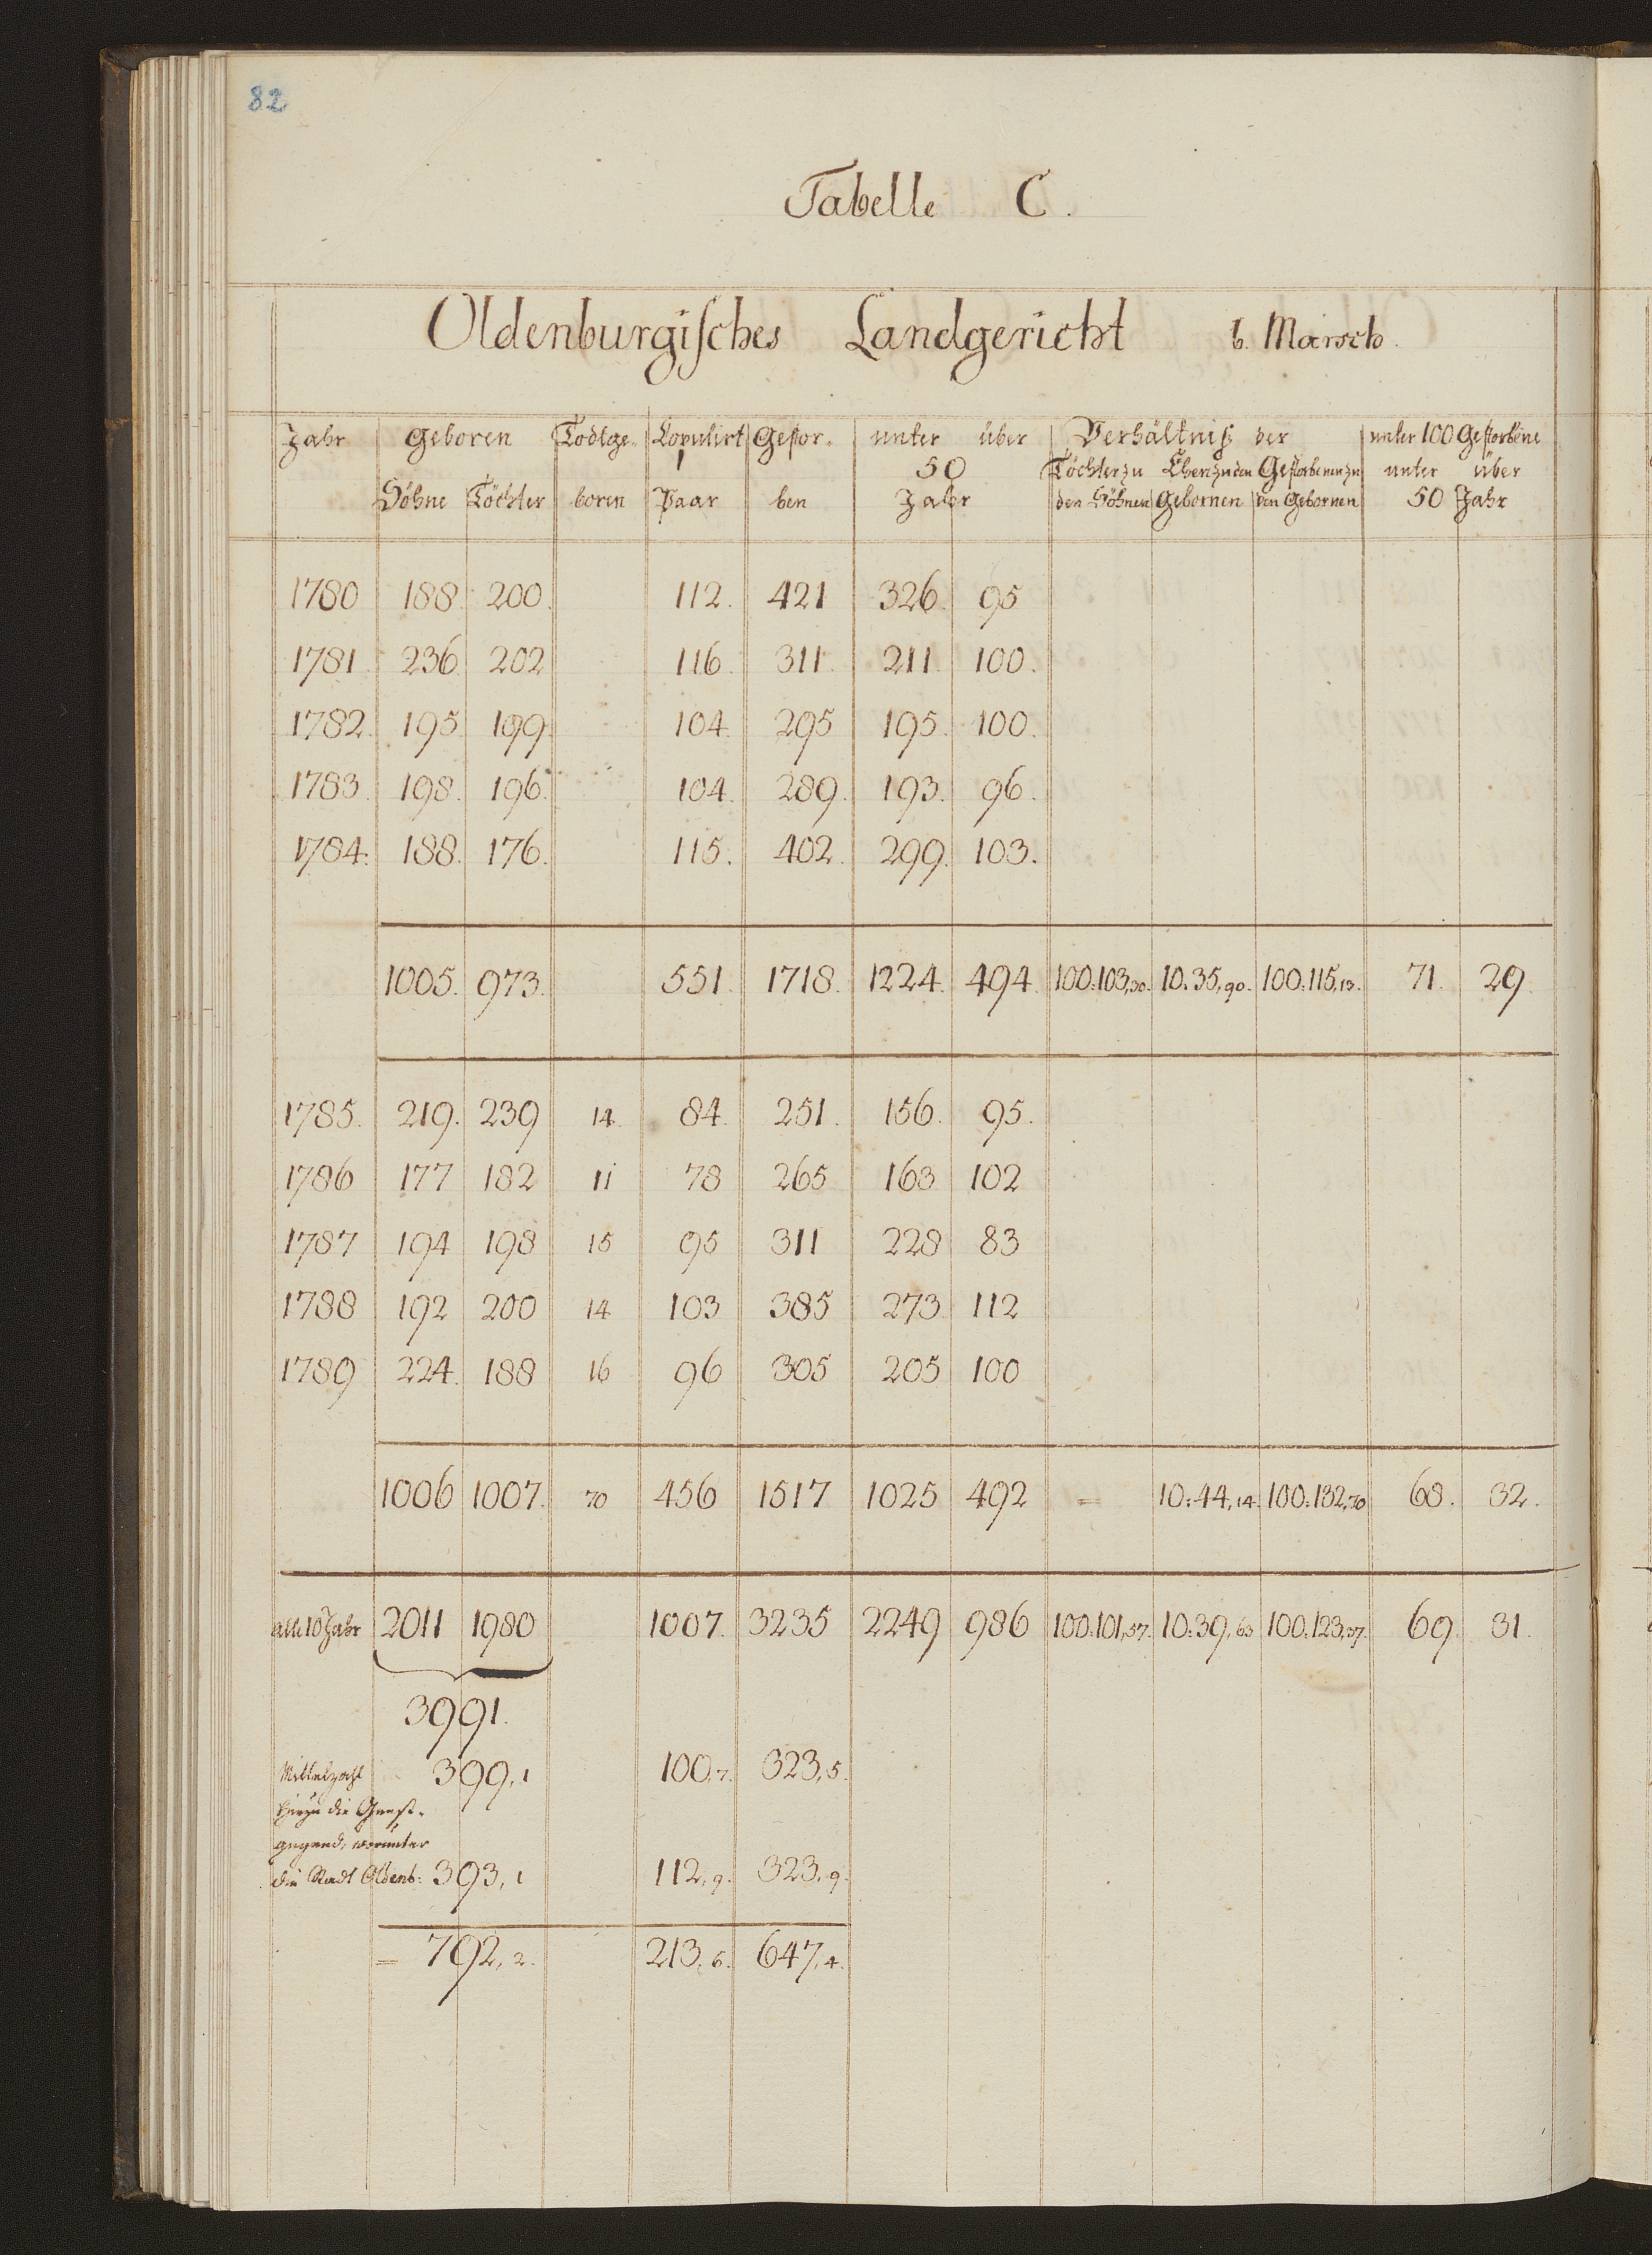 82
Tabelle C.
Oldenburgisches Landgericht b. Marsch.
Jahr geboren Todtge- Copulirt Gestor- unter über Verhältniß der unter 100 Gestorbene
50 Töchter zu Ehen zu den Gestorbenen zu unter über
Söhne Töchter boren Paar ben Jahr den Söhnen Gebornen den Gebornen 50 Jahr
1780 188. 200. 112. 421 326. 95
1781 236 202 116. 311. 211. 100.
1782. 195 199. 104. 295 195. 100.
1783. 198. 196. 104. 289. 193. 96.
1784. 188. 176. 115. 402. 299. 103.
1005. 973. 551. 1718. 1224. 494. 100:103,30. 10:35,90. 100:115,13. 71. 29.
1785. 219. 239 14. 84. 251. 156. 95.
1786 177 182 11 78 265 163 102
1787 194 198 15 95 311 228 83
1788 192 200 14 103 385 273 112
1789 224. 188 16 96 305 205 100
1006 1007. 70 456 1517 1025 492 = 10:44,14. 100:132,70 68. 32.
alle 10 Jahr 2011 1980 1007. 3235 2249 986 100:101,57. 10:39,63 100:123,37. 69. 31.
3991.
Mittelzahl 399,1 100,7. 323,5.
hiezu die Geest-
gegend, worunter
die Stadt Oldenb: 393,1 112,9. 323,9.
= 792,2. 213,6. 647,4.